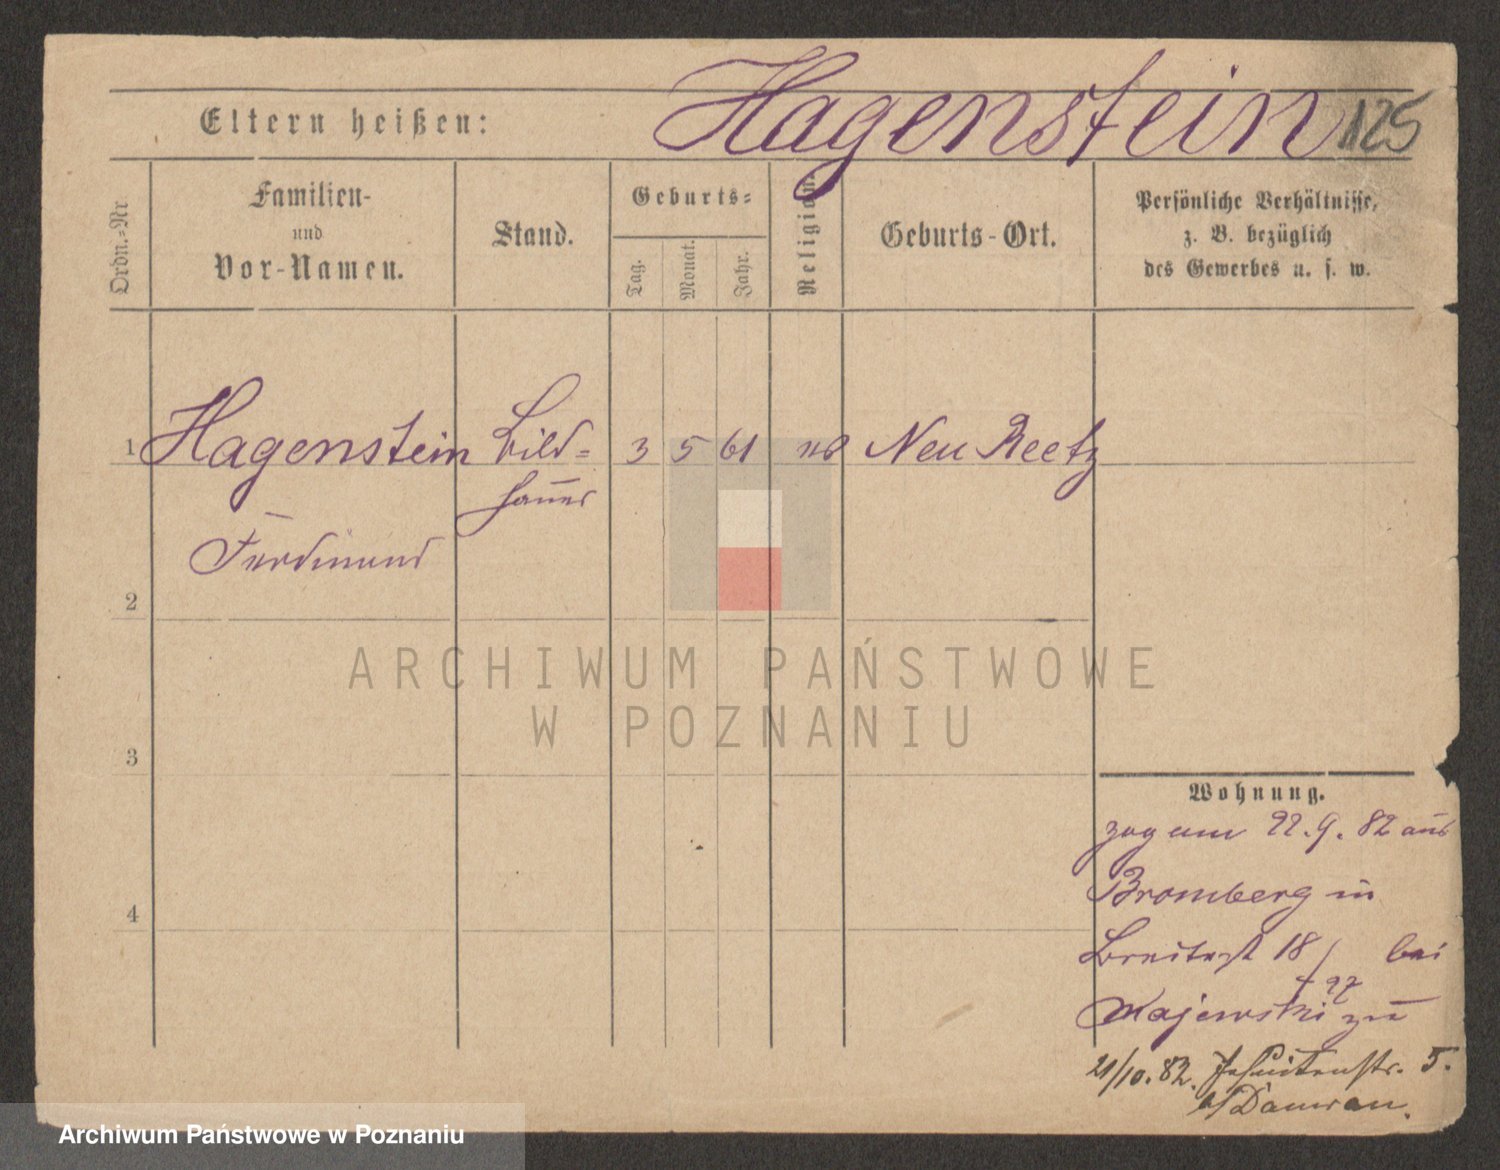 Hagenstein 125
Eltern heißen:
Ordn.=Nr
Familien-
und
Vor-Namen.
Stand.
Geburts=
Tag.
Monat.
Jahr.
Religion
Geburts-Ort.
Persönliche Verhältnisse,
z. B. bezüglich
des Gewerbes u. s. w.
1 Hagenstein Bild= 3 5 61 Neu Reetz
hauer
Ferdinand
2
ARCHIWUM PAŃSTWOWE
W POZNANIU
3
Wohnung.
zog am 22.9.82 aus
Bromberg in
Breitestr 18/ bei
Majewski zu
21/10.82. Jesuitenstr. 5.
b/
4
Archiwum Państwowe w Poznaniu